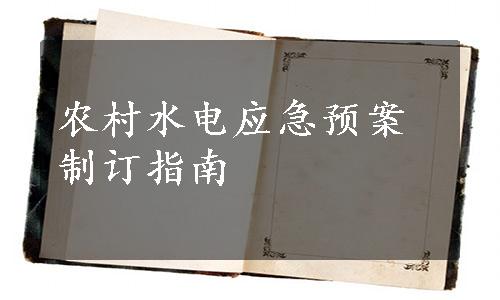 农村水电应急预案
制订指南